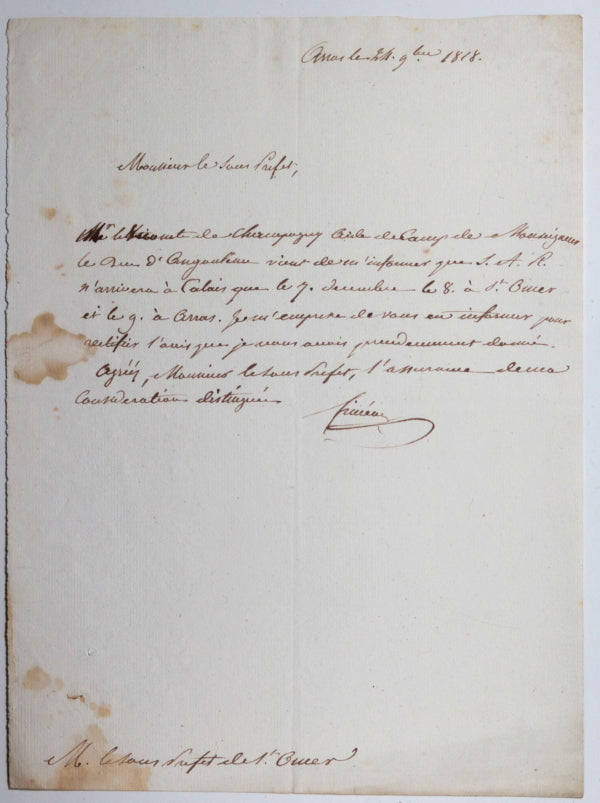 Arras le 24. 9bre 1818.
Monsieur le Sous Préfet,
Mr le Vicomte de Champagny Aide de Camp de Monseigneur
le Duc d'Angoulême vient de m'informer que S. A. R.
n'arrivera à Calais que le 7. decembre le 8. à St Omer
et le 9. à Arras. Je m'empresse de vous en informer pour
rectifier l'avis que je vous avois précédemment donné.
Agréés, Monsieur le Sous Préfet, l'assurance de ma
Considération distinguée
Siméon
M. le Sous Préfet de St Omer.